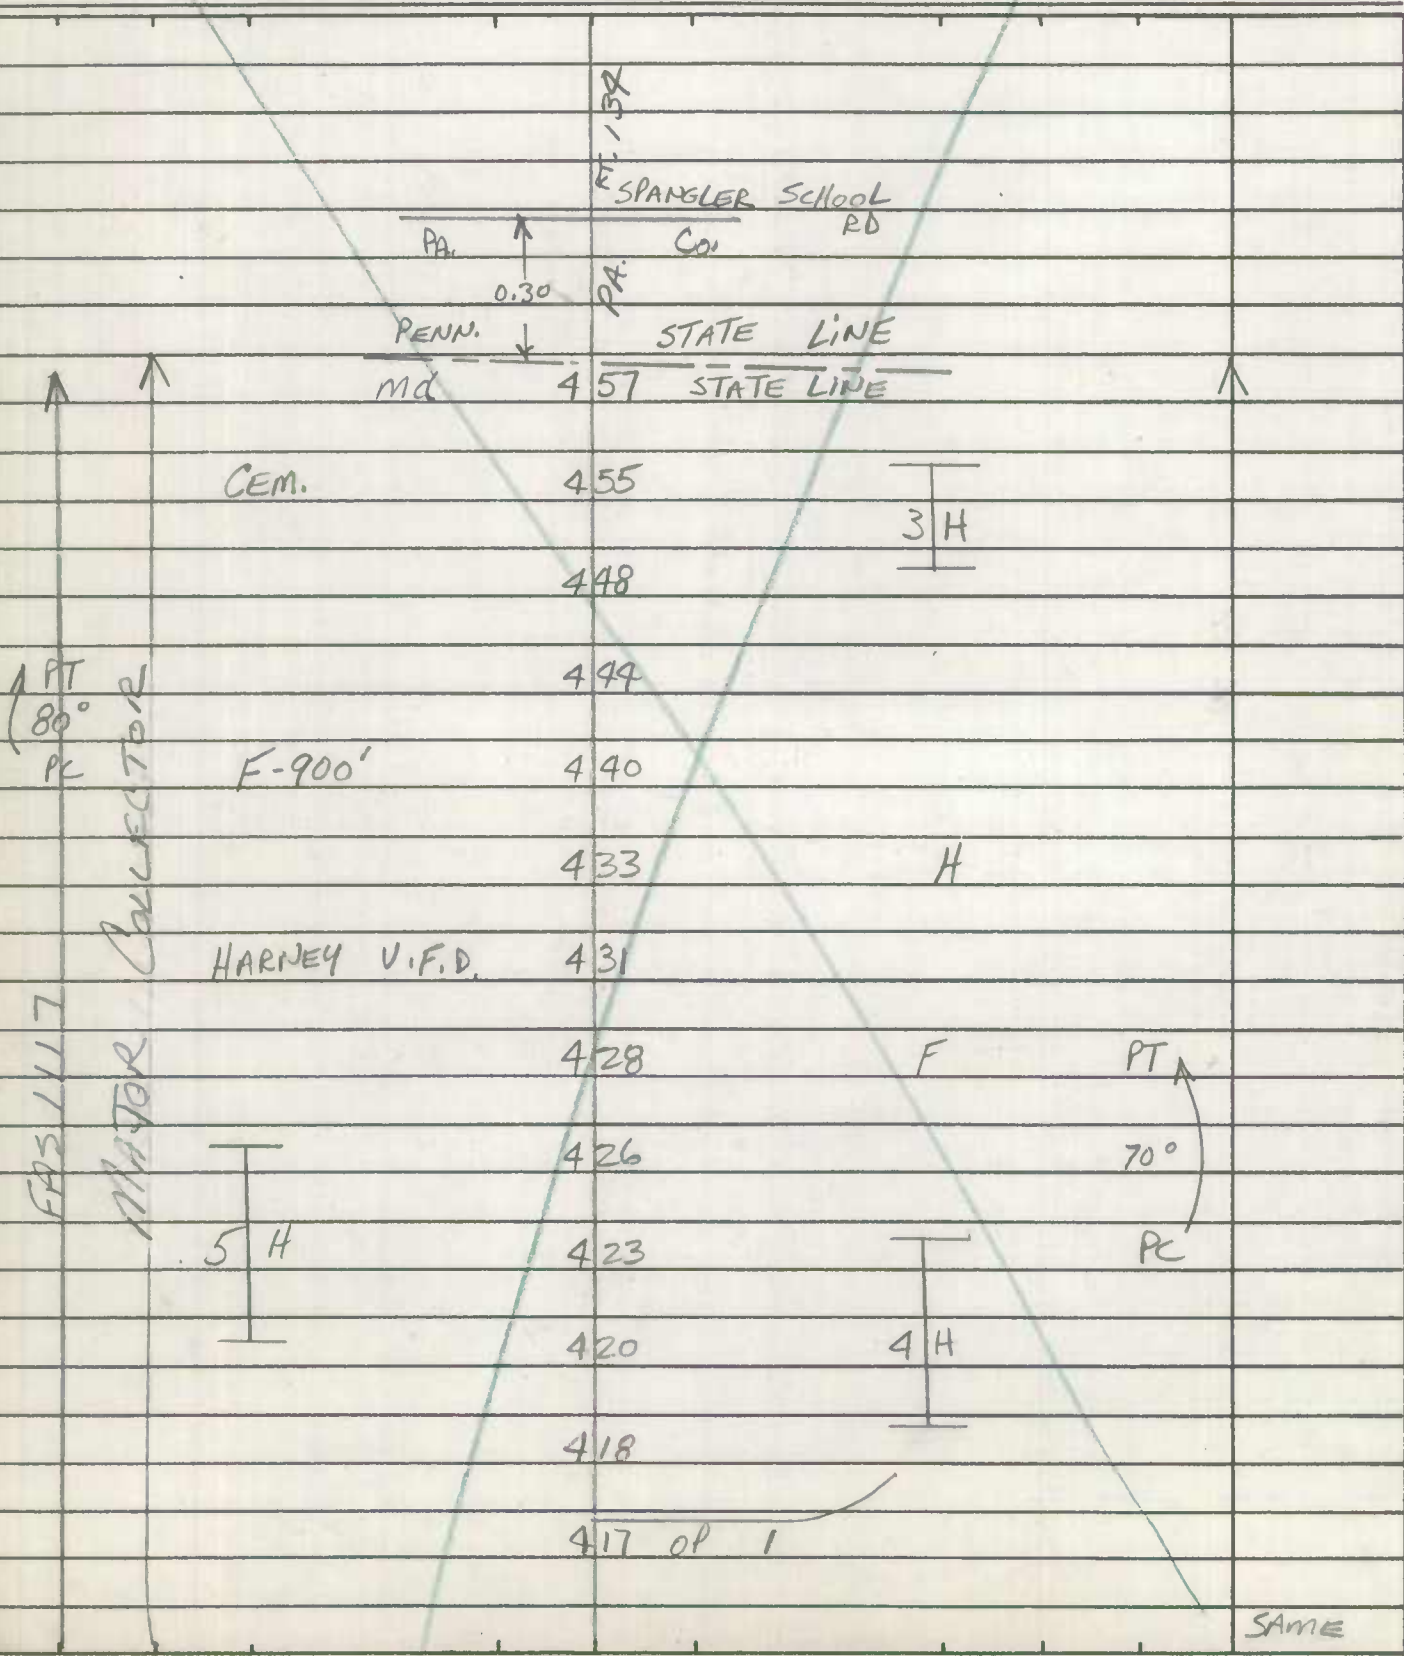 RT. 134
SPANGLER SCHOOL
RD
PA. Co.
0.30
PA.
PENN. STATE LINE
Md 4 57 STATE LINE
CEM. 4 55
3 H
4 48
PT 4 44
80°
PC F-900' 4 40
4 33 H
HARNEY V.F.D. 4 31
4 28 F PT
4 26 70°
5 H 4 23 PC
4 20 4 H
4 18
4 17 OP 1
FAS 1117
MAJOR COLLECTOR
SAME